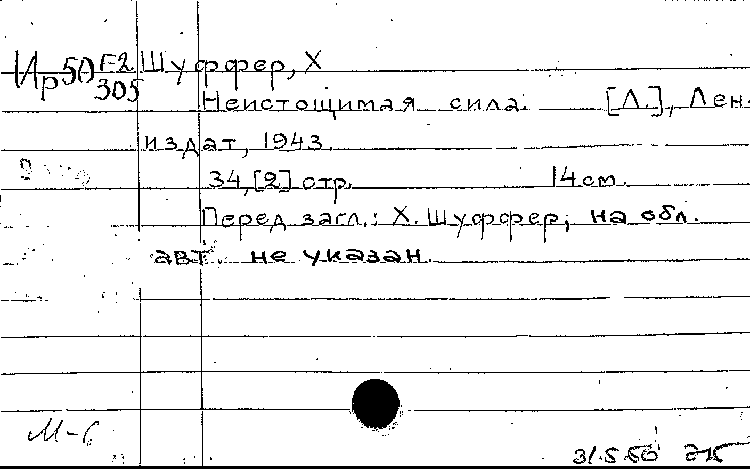 Ир50 Е-2 Шуффер, Х
305
Неистощимая сила. [Л.], Лен-
издат, 1943.
34,[2] стр. 14 см.
Перед загл.: Х. Шуффер; на обл.
авт. не указан.
М-С
31.5.50